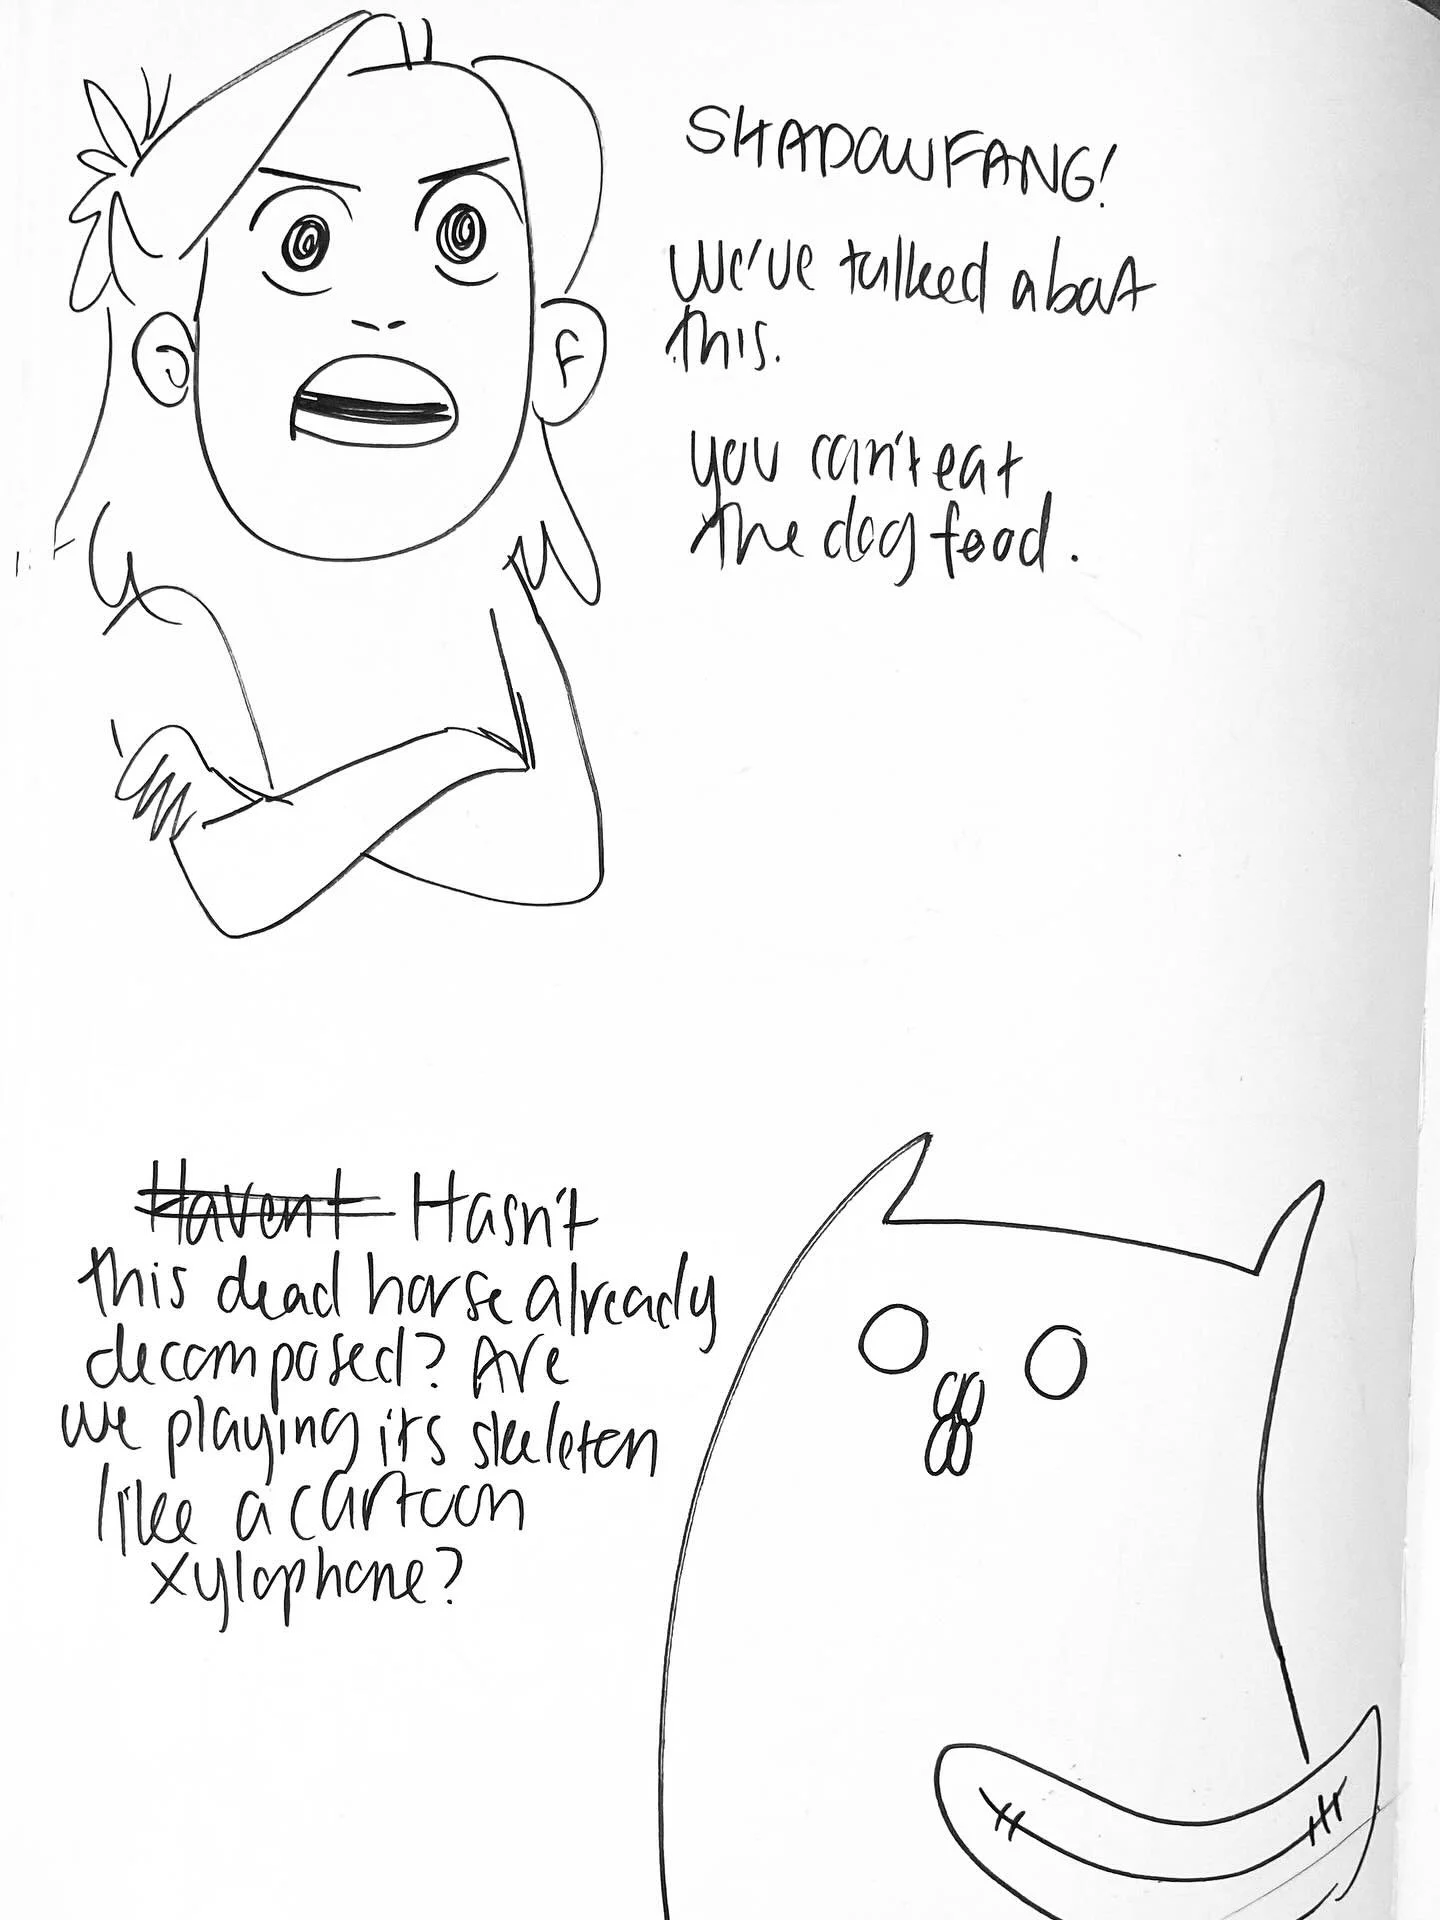 SHADOWFANG!
We've talked about
this.
you can't eat
the dog food.
Havent Hasn't
this dead horse already
decomposed? Are
we playing its skeleton
like a cartoon
xylophone?